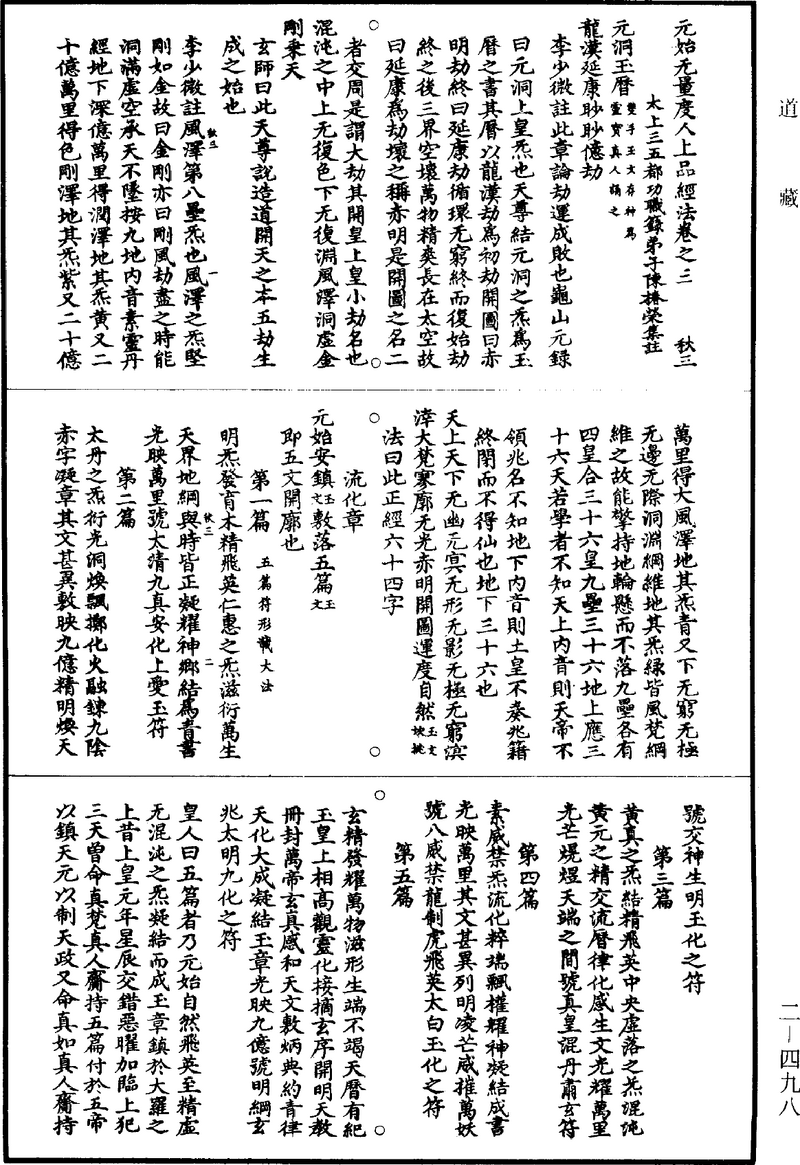 道藏
元始无量度人上品經法卷之三 秋三
太上三五都功職籙弟子陳椿榮集註
元洞玉曆 雙手玉文存神為靈寶真人誦之
龍漢延康眇眇億劫
李少微註此章論劫運成敗也龜山元錄
曰元洞上皇炁也天尊結元洞之炁為玉
曆之書其曆以龍漢劫為初劫開圖曰赤
明劫終曰延康劫循環无窮終而復始劫
終之後三界空壞萬物精爽長在太空故
曰延康為劫壞之稱赤明是開圖之名二
者交周是謂大劫其開皇上皇小劫名也
混沌之中上无復色下无復淵風澤洞虛金
剛乘天
玄師曰此天尊說造道開天之本五劫生
成之始也
李少微註風澤第八壘炁也風澤之炁堅
剛如金故曰金剛亦曰剛風劫盡之時能
洞滿虛空承天不墜按九地內音素靈丹
經地下深億萬里得潤澤地其炁黃又二
十億萬里得色剛澤地其炁紫又二十億
萬里得大風澤地其炁青又下无窮无極
无邊无際洞淵綱維地其炁綠皆風梵綱
維之故能擎持地輪懸而不落九壘各有
四皇合三十六皇九壘三十六地上應三
十六天若學者不知天上內音則天帝不
領兆名不知地下內音則土皇不奏兆籍
終閉而不得仙也地下三十六也
天上天下无幽无冥无形无影无極无窮溟
涬大梵寥廓无光赤明開圖運度自然 玉文
法曰此正經六十四字
流化章
元始安鎮 玉文 敷落五篇 玉文
即五文開廓也
第一篇 五篇符形載大法
明炁發育木精飛英仁惠之炁滋衍萬生
天界地綱與時皆正凝耀神鄉結為青書
光映萬里號太清九真安化上愛玉符
第二篇
太丹之炁衍光洞煥飄擲化火融鍊九陰
赤字凝章其文甚異敷映九億精明煥天
號交神生明玉化之符
第三篇
黃真之炁結精飛英中央虛落之炁混沌
黃元之精交流曆律化感生文光耀萬里
光芒熀煜天端之間號真皇混丹肅玄符
第四篇
素威禁炁流化粹端飄權耀神凝結成書
光映萬里其文甚異列明凌芒威摧萬妖
號八威禁龍制虎飛英太白玉化之符
第五篇
玄精發耀萬物滋形生端不竭天曆有紀
玉皇上相高觀靈化接摘玄序開明天教
冊封萬帝玄真感和天文敷炳典約青律
天化大成凝結玉章光映九億號明綱玄
兆太明九化之符
皇人曰五篇者乃元始自然飛英至精虛
无混沌之炁凝結而成玉章鎮於大羅之
上昔上皇元年星辰交錯惡曜加臨上犯
三天曾命真梵真人齎持五篇付於五帝
以鎮天元以制天政又命真如真人齎持
二—四九八